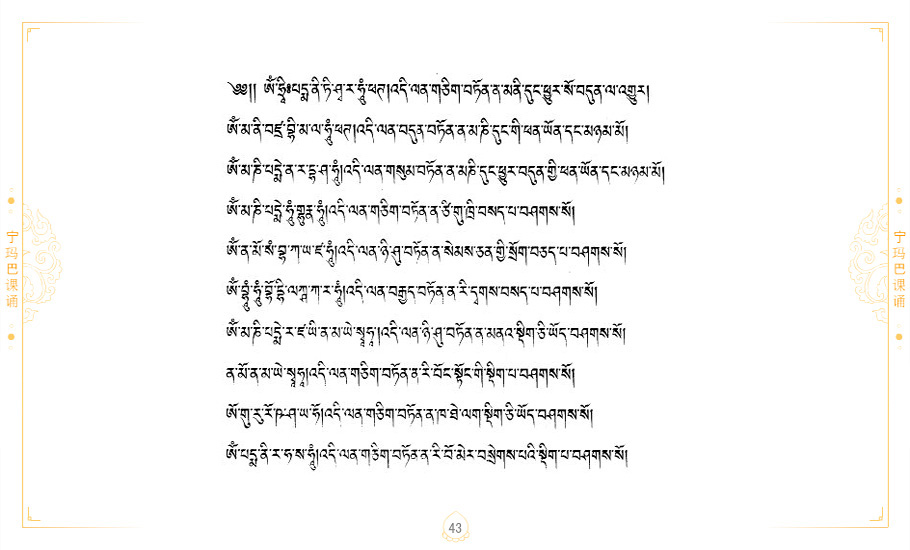 ༄༅།། ཨོཾ་ཧྲཱིཿཔདྨ་ནི་ཏི་ཤྭ་ར་ཧཱུྃ་ཕཊ།འདི་ལན་གཅིག་བཏོན་ན་མནི་དུང་ཕྱུར་སོ་བདུན་ལ་འགྱུར།
ཨོཾ་མ་ནི་བཛྲ་བྷི་མ་ལ་ཧཱུྃ་ཕཊ།འདི་ལན་བདུན་བཏོན་ན་མཎི་དུང་གི་ཕན་ཡོན་དང་མཉམ་མོ།
ཨོཾ་མ་ཎི་པདྨེ་ན་ར་ཤ་ཧཱུྃ།འདི་ལན་གསུམ་བཏོན་ན་མཎི་དུང་ཕྱུར་བདུན་གྱི་ཕན་ཡོན་དང་མཉམ་མོ།
ཨོཾ་མ་ཎི་པདྨེ་ཧཱུྃ་ཧཱུྃ།འདི་ལན་གཅིག་བཏོན་ན་ཙི་གུ་ཁྲི་བསད་པ་བཤགས་སོ།
ཨོཾ་ན་མོ་སཾ་བྷ་ཀ་ཡ་ཛ་ཧཱུྃ།འདི་ལན་ཉི་ཤུ་བཏོན་ན་སེམས་ཅན་གྱི་སྲོག་བཅད་པ་བཤགས་སོ།
ཨོཾ་ཧཱུྃ་ཀ་ར་ཧཱུྃ།འདི་ལན་བརྒྱད་བཏོན་ན་རི་དྭགས་བསད་པ་བཤགས་སོ།
ཨོཾ་མ་ཎི་པདྨེ་ར་ཛ་ཡི་ན་མ་ཡེ་སྭཱཧཱ།འདི་ལན་ཉི་ཤུ་བཏོན་ན་མནའ་སྡིག་ཅི་ཡོད་བཤགས་སོ།
ན་མོ་ན་མ་ཡེ་སྭཱཧཱ།འདི་ལན་གཅིག་བཏོན་ན་རི་བོང་སྟོང་གི་སྡིག་པ་བཤགས་སོ།
ཨོ་གུ་རུ་ཤ་ཡ་ཧོ།འདི་ལན་གཅིག་བཏོན་ན་ཁ་ཐེ་ལག་སྡིག་ཅི་ཡོད་བཤགས་སོ།
ཨོཾ་པདྨ་ནི་ར་ཧ་ས་ཧཱུྃ།འདི་ལན་གཅིག་བཏོན་ན་རི་བོ་མེར་བསྲེགས་པའི་སྡིག་པ་བཤགས་སོ།
宁玛巴课诵
宁玛巴课诵
43